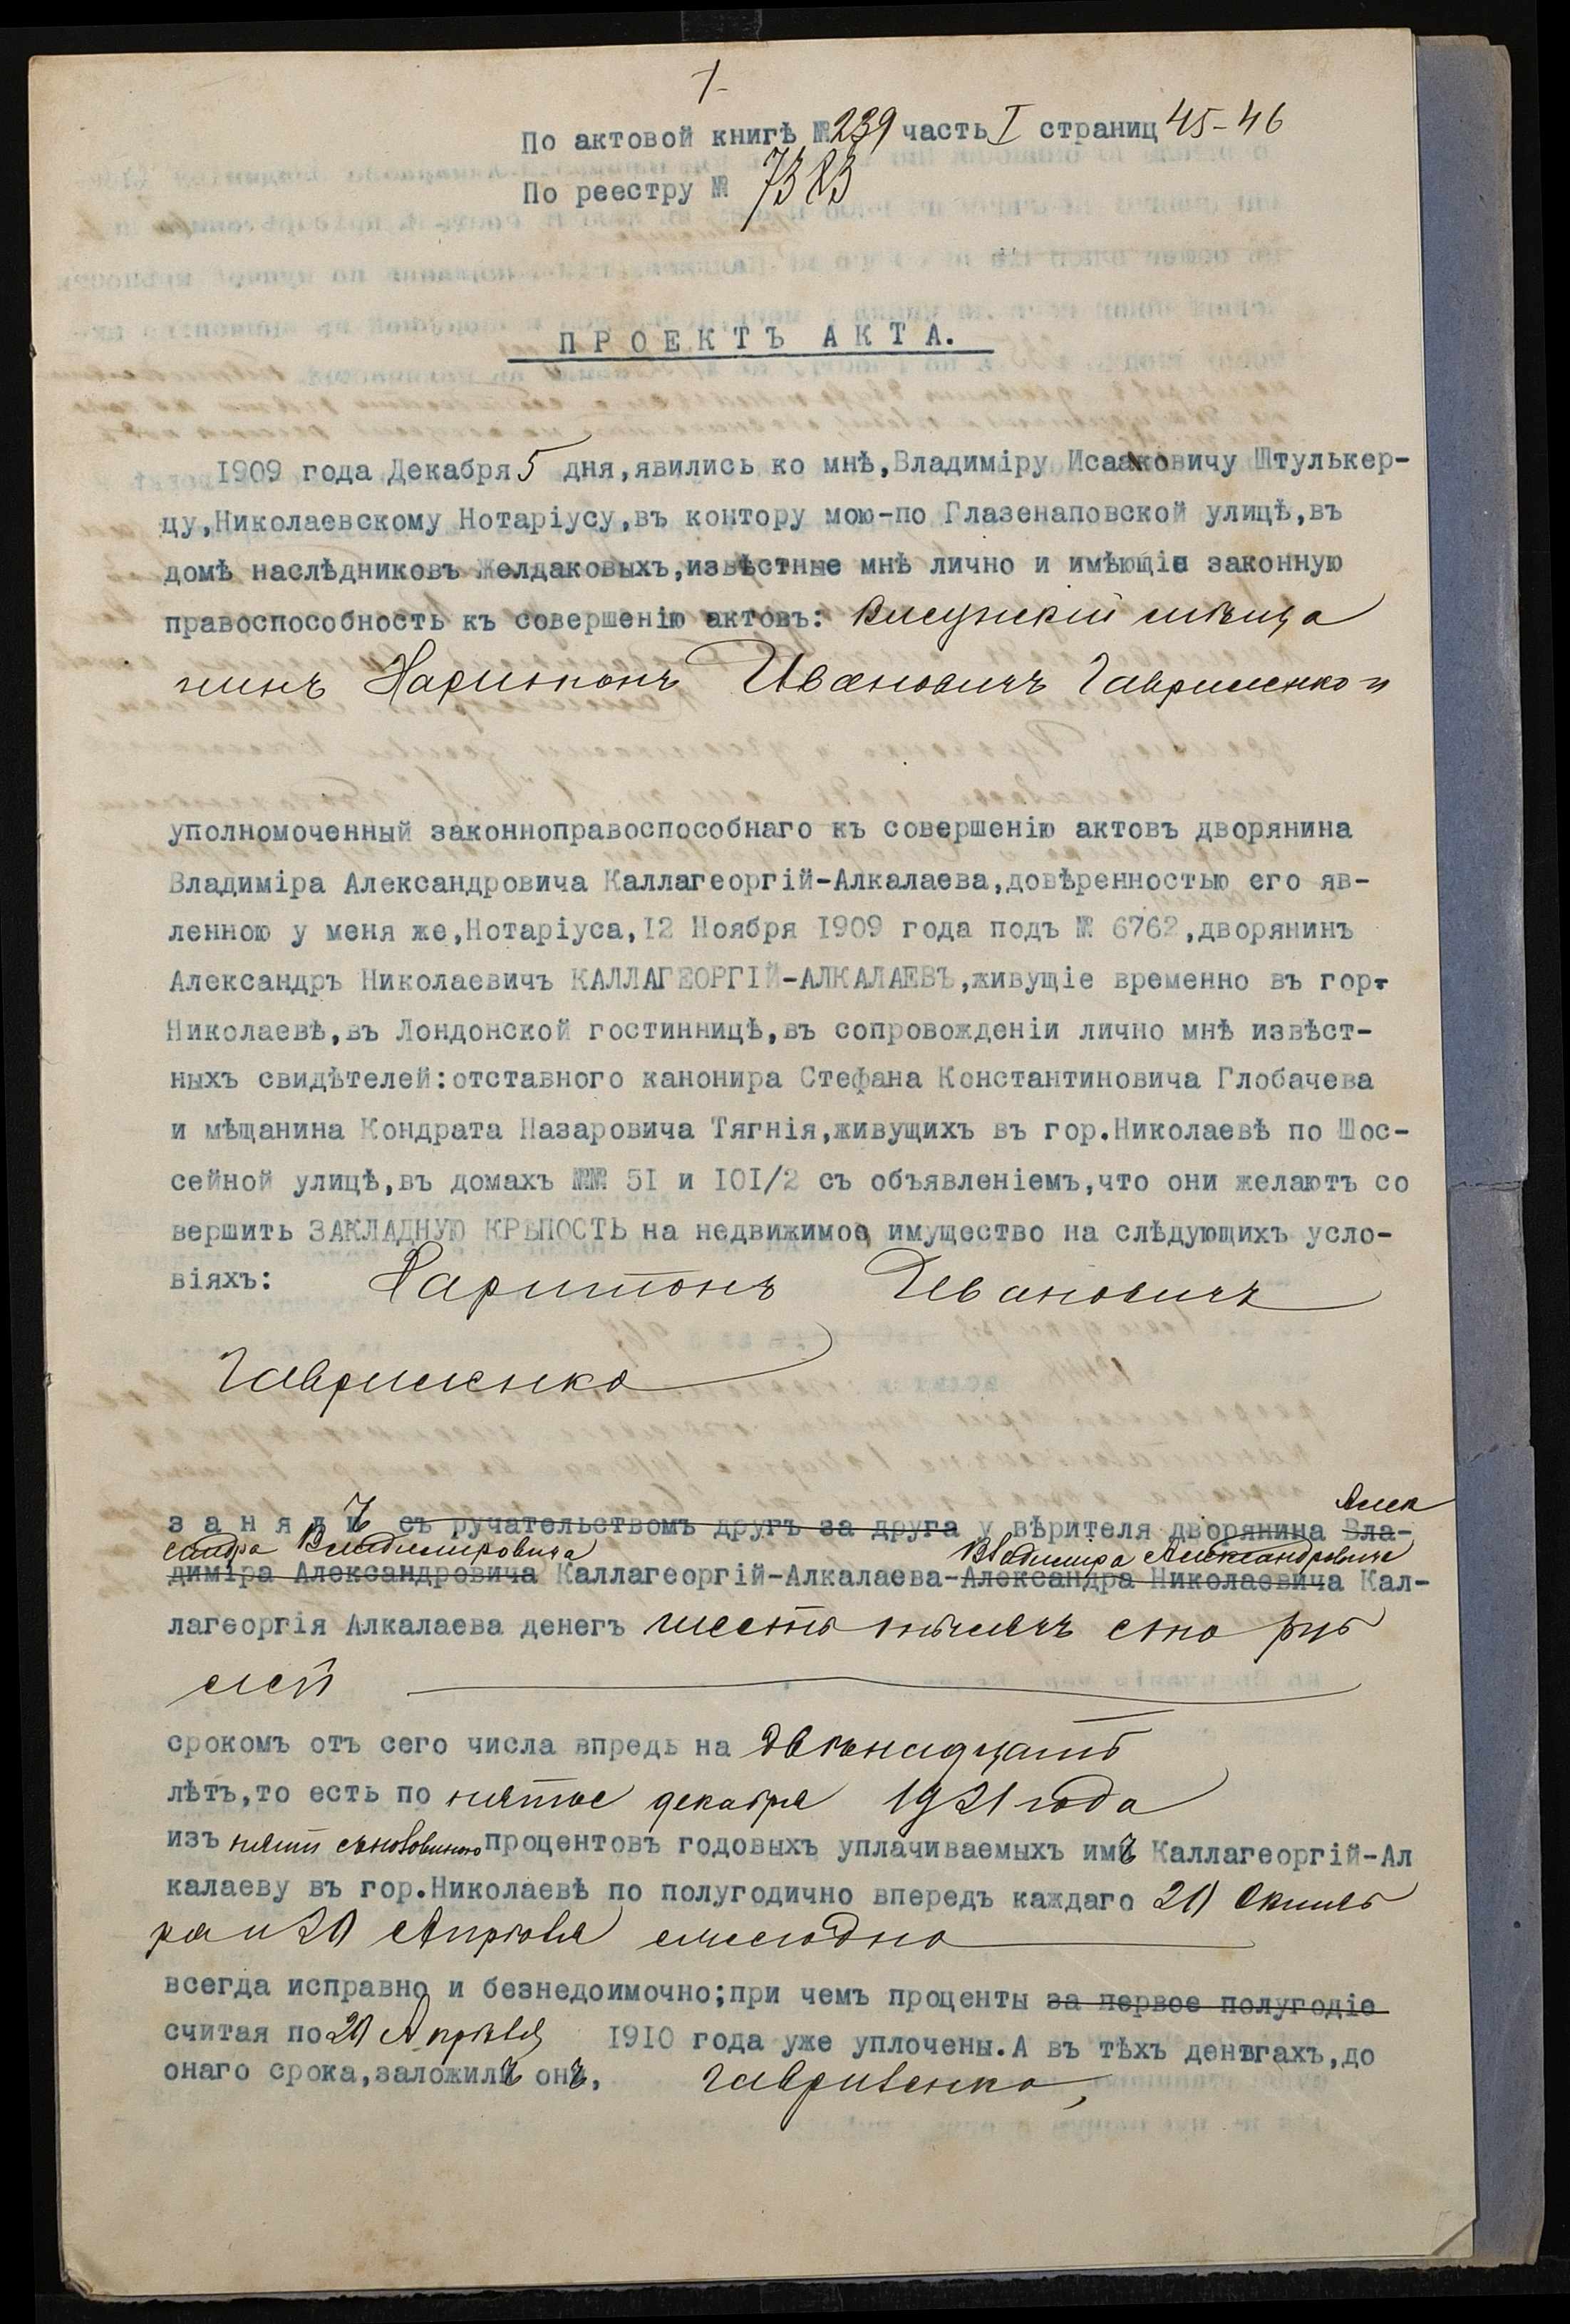 1
По актовой книгѣ № 239 часть I страниц 45-46
По реестру № 7383
ПРОЕКТЪ АКТА.
1909 года Декабря 5 дня, явились ко мнѣ, Владиміру Исааковичу Штулькер-
цу, Николаевскому Нотаріусу, въ контору мою-по Глазенаповской улицѣ, въ
домѣ наслѣдниковъ Желдаковыхъ, извѣстные мнѣ лично и имѣющіе законную
правоспособность къ совершенію актовъ: Висунскій мѣща
нинъ Харитонъ Ивановичъ Гавриленко и
уполномоченный законноправоспособнаго къ совершенію актовъ дворянина
Владиміра Александровича Каллагеоргій-Алкалаева, довѣренностью его яв-
ленною у меня же, Нотаріуса, 12 Ноября 1909 года подъ № 6762, дворянинъ
Александръ Николаевичъ КАЛЛАГЕОРГІЙ-АЛКАЛАЕВЪ, живущіе временно въ гор.
Николаевѣ, въ Лондонской гостинницѣ, въ сопровожденіи лично мнѣ извѣст-
ныхъ свидѣтелей: отставного канонира Стефана Константиновича Глобачева
и мѣщанина Кондрата Назаровича Тягнія, живущихъ въ гор. Николаевѣ по Шос-
сейной улицѣ, въ домахъ №№ 51 и 101/2 съ объявленіемъ, что они желаютъ со
вершить ЗАКЛАДНУЮ КРѢПОСТЬ на недвижимое имущество на слѣдующихъ усло-
віяхъ: Харитонъ Ивановичъ
Гавриленко
Алек
занялъ съ ручательствомъ другъ за друга у вѣрителя дворянина Вла-
сандра Владимировича Владимира Александровича
диміра Александровича Каллагеоргій-Алкалаева-Александра Николаевича Кал-
лагеоргія Алкалаева денегъ шесть тысячъ сто руб
лей
срокомъ отъ сего числа впредь на двѣнадцать
лѣтъ, то есть по пятое декабря 1921 года
изъ пяти съ половиною процентовъ годовыхъ уплачиваемыхъ имъ Каллагеоргій-Ал
калаеву въ гор. Николаевѣ по полугодично впередъ каждаго 20 Октяб
ря и 20 Апрѣля ежегодно
всегда исправно и безнедоимочно; при чемъ проценты за первое полугодіе
считая по 20 Апрѣля 1910 года уже уплочены. А въ тѣхъ деньгахъ, до
онаго срока, заложилъ онъ, Гавриленко,